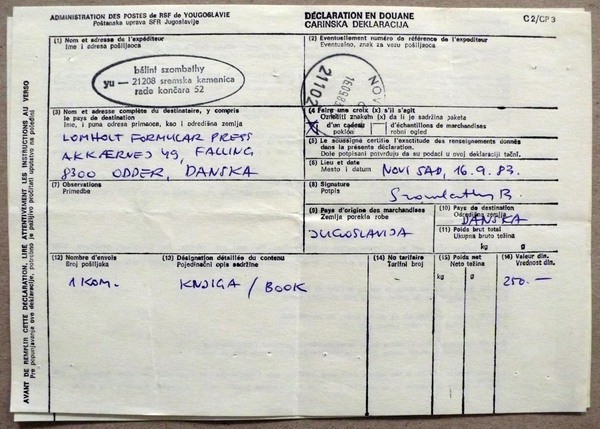 ADMINISTRATION DES POSTES de RSF de YOUGOSLAVIE
Poštanska uprava SFR Jugoslavije
DÉCLARATION EN DOUANE
CARINSKA DEKLARACIJA
C 2/CP 3
(1) Nom et adresse de l'expéditeur
Ime i adresa pošiljaoca
bálint szombathy
yu — 21208 sremska kamenica
rade končara 52
(2) Eventuellement numéro de référence de l'expéditeur
Eventualno, znak za vezu pošiljaoca
21102
16.09.83
NOV
(3) Nom et adresse complète du destinataire, y compris
le pays de destination
Ime, i puna adresa primaoca, kao i odredišna zemlja
LOMHOLT FORMULAR PRESS
AKKÆRVEJ 49, FALLING
8300 ODDER, DANSKA
(4) Faire une croix (x) s'il s'agit
Označiti znakom (x) da li je sadržina paketa
X d'un cadeau
poklon
d'échantillons de marchandises
robni ogled
(5) Le soussigné certifie l'exactitude des renseignements donnés
dans la présente déclaration.
Dole potpisani potvrđuje da su podaci u ovoj deklaraciji tačni.
(6) Lieu et date
Mesto i datum
NOVI SAD, 16.9.83.
(7) Observations
Primedba
(8) Signature
Potpis
Szombathy B.
(9) Pays d'origine des marchandises
Zemlja porekla robe
JUGOSLAVIJA
(10) Pays de destination
Odredišna zemlja
DANSKA
(11) Poids brut total
Ukupna bruto težina
kg
g
(12) Nombre d'envois
Broj pošiljaka
(13) Désignation détaillée du contenu
Pojedinačni opis sadržine
(14) No tarifaire
Tarifni broj
(15) Poids net
Neto težina
(16) Valeur din.
Vrednost din.
1 KOM.
KNJIGA / BOOK
kg
g
250.—
AVANT DE REMPLIR CETTE DÉCLARATION, LIRE ATTENTIVEMENT LES INSTRUCTIONS AU VERSO
Pre popunjavanja ove deklaracije, potrebno je pažljivo pročitati uputstvo na poleđini